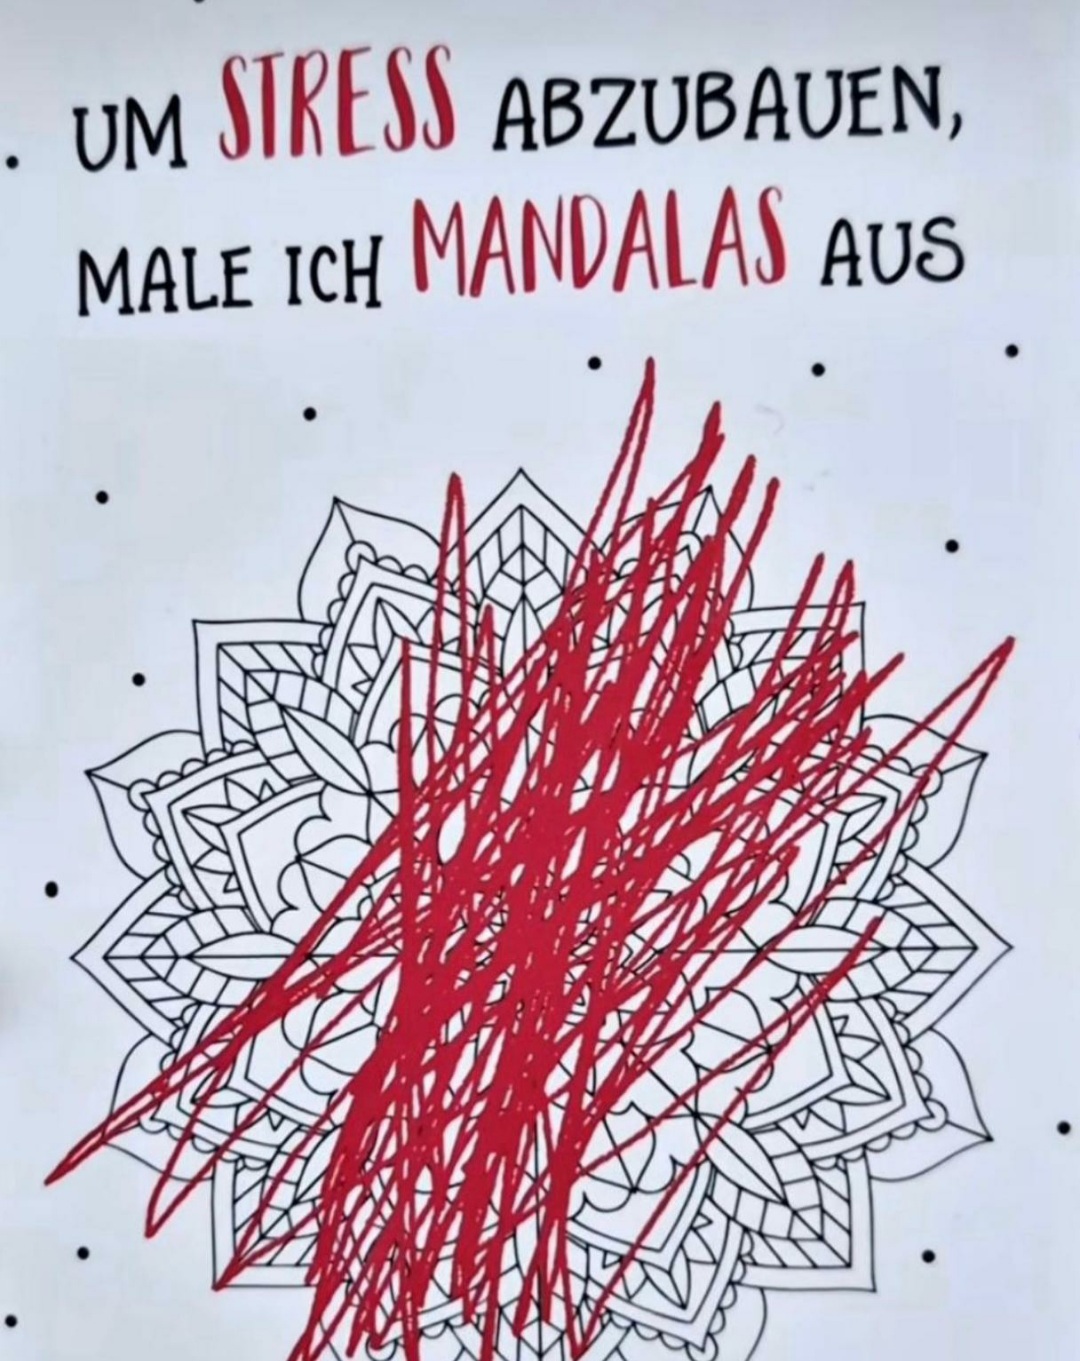 UM STRESS ABZUBAUEN,
MALE ICH MANDALAS AUS